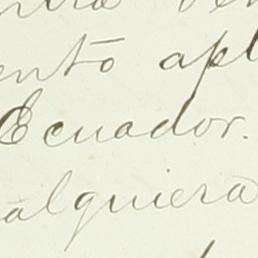 ento apl
Ecuador.
alquiera